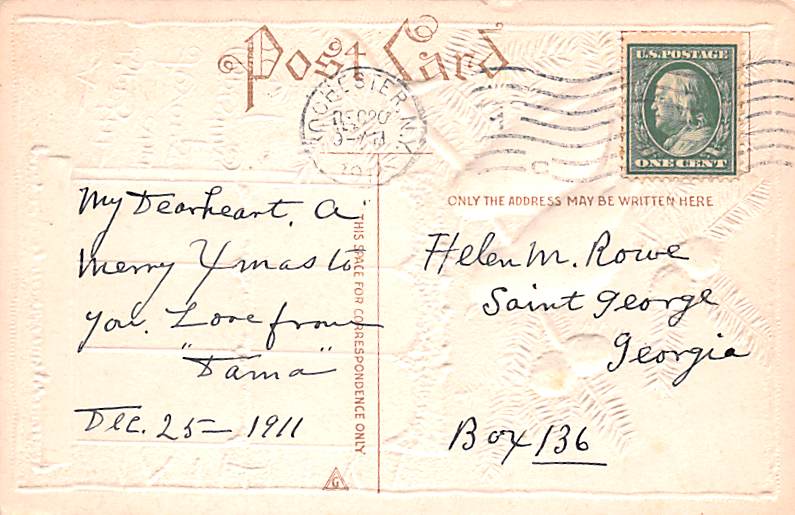 Post Card
ROCHESTER, N.Y.
DEC 20
U.S. POSTAGE
ONE CENT
ONLY THE ADDRESS MAY BE WRITTEN HERE
THIS SPACE FOR CORRESPONDENCE ONLY
My Dearheart, A
Merry Xmas to
you. Love from
"Dama"
Dec. 25 - 1911
Helen M. Rowe
Saint George
Georgia
Box 136
G